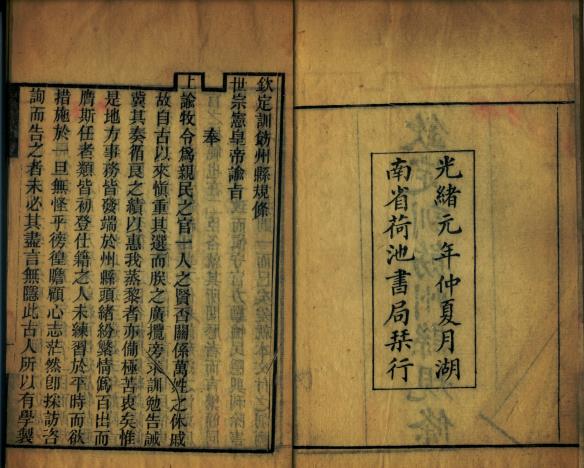 光緒元年仲夏月湖
南省荷池書局栞行
欽定訓飭州縣規條
世宗憲皇帝諭旨
奉
上諭牧令爲親民之官一人之賢否關係萬姓之休戚
故自古以來慎重其選而朕之廣攬旁求訓勉告誡
冀其奏循良之績以惠我蒸黎者亦備極苦衷矣惟
是地方事務皆發端於州縣頭緒紛繁情僞百出而
膺斯任者類皆初登仕籍之人未練習於平時而欲
措施於一旦無怪乎徬徨瞻顧心志茫然卽採訪咨
詢而告之者未必其盡言無隱此古人所以有學製